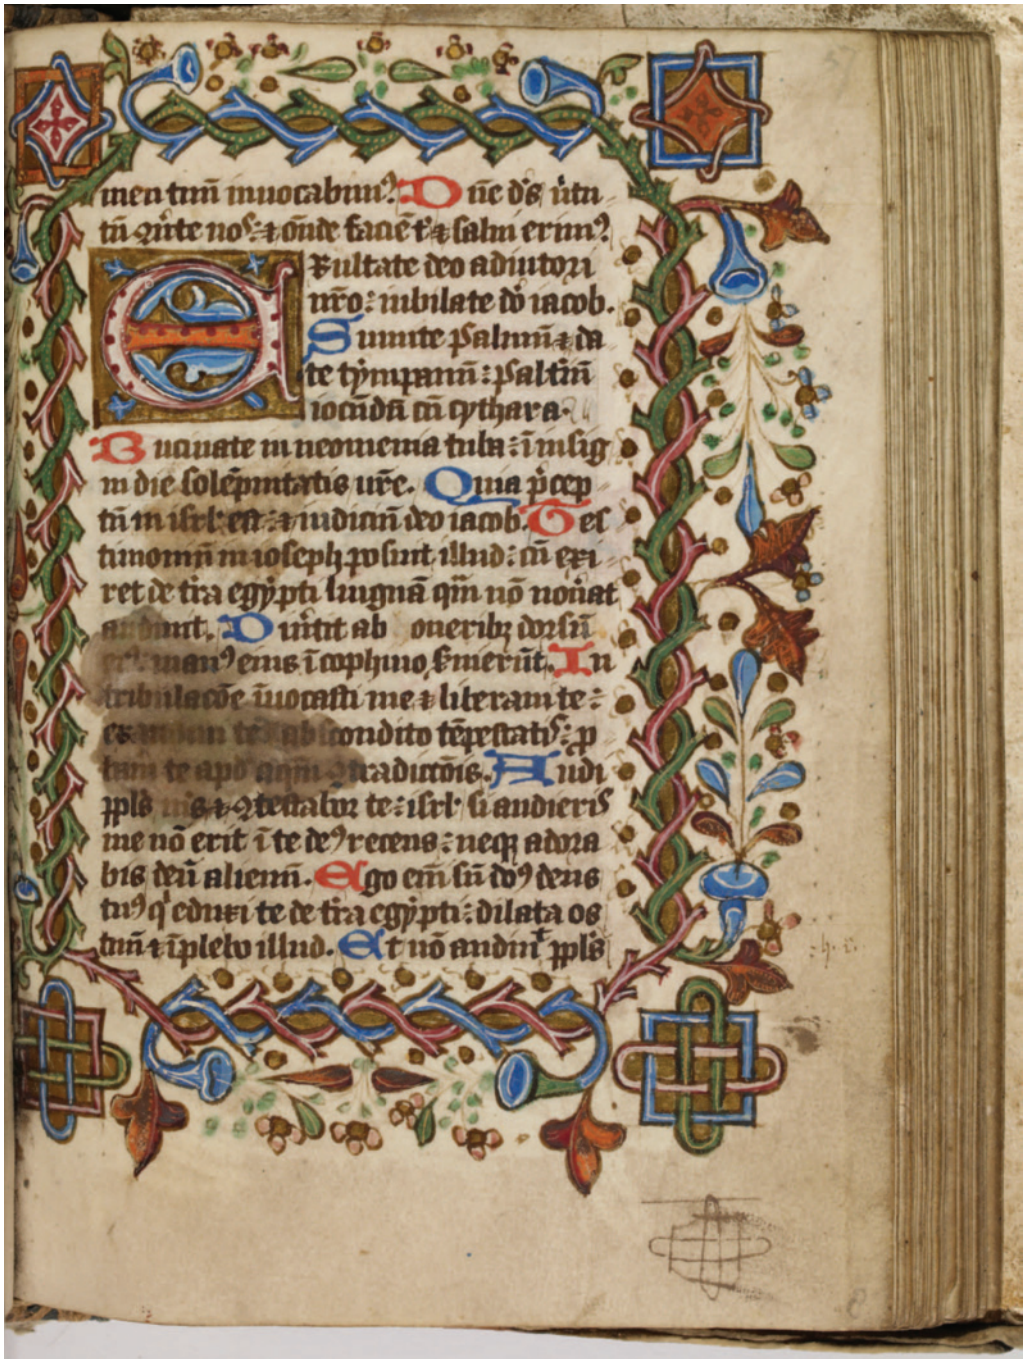 men tuū inuocabim⁹. Dn̄e ds̄ uirtu
tū ꝯu̇te nos: ⁊ on̄de faciē tᷓ ⁊ salui erim⁹.
Exultate deo adiutori
nr̄o: iubilate dō iacob.
Sumite psalmū ⁊ da
te tẏmpanū: psaltiū
iocūdū cū cythara.
Bucinate in neomenia tuba: ī insig
ni die solēpnitatis ur̄e. Quia p̄cep
tū in isrl̄ est: ⁊ iudiciū deo iacob. Tes
timoniū in ioseph posuit illud: cū exi
ret de tr̄a egẏpti linguā quā nō nouāt
audiuit. Diuītit ab oneribꝫ dorsū
man⁹ eius ī cophino s̄uierūt. In
tribulacōe īuocasti me ⁊ liberaui te:
condito tēpestatis: ꝓ
te apd̄ aquā ꝯtradictōis. Audi
ppl̄s ⁊ ꝯtestabor te: isrl̄ si audieris
me nō erit ī te de⁹ recens: neqꝫ adora
bis deū alienū. Ego em̄ sū dn̄s deus
tu⁹ qi eduxi te de tr̄a egẏpti: dilata os
tuū ⁊ īplebo illud. Et nō audiuit ppl̄s